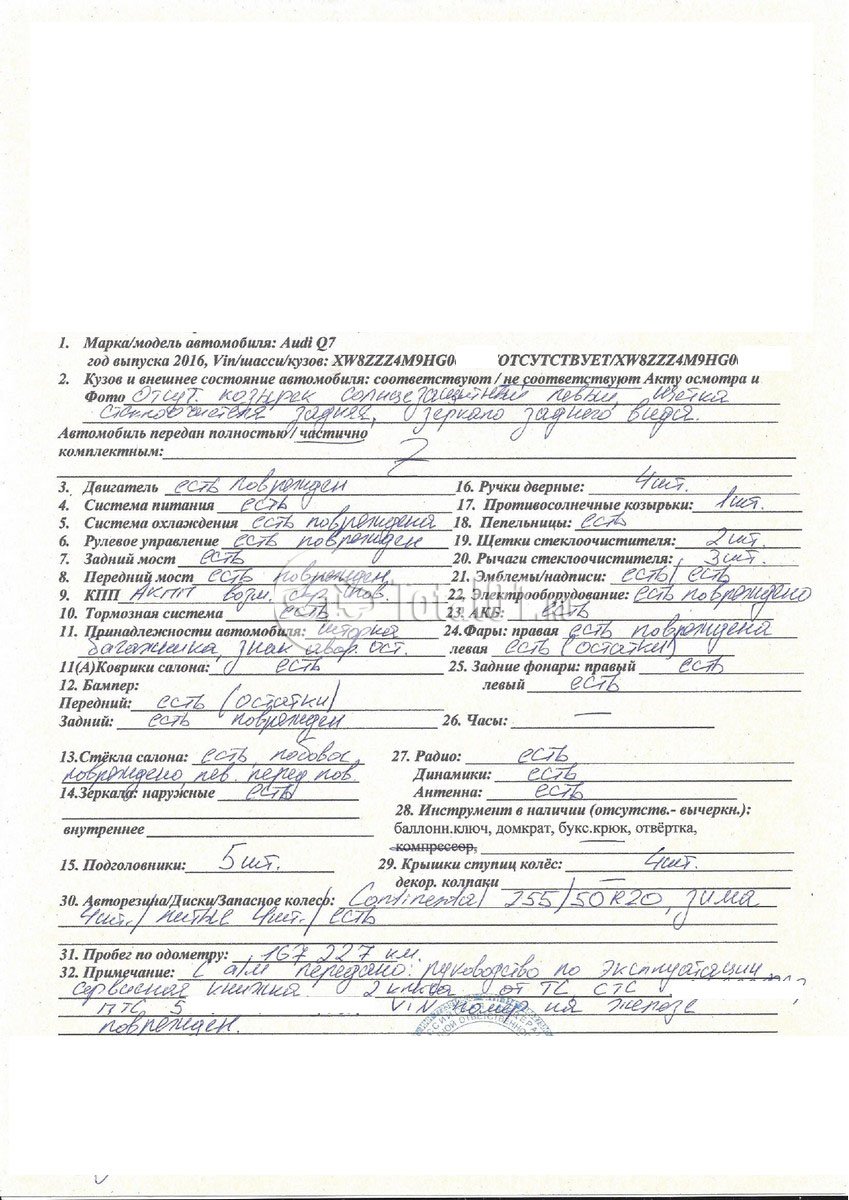 1. Марка/модель автомобиля: Audi Q7
год выпуска 2016, Vin/шасси/кузов: XW8ZZZ4M9HG0 /ОТСУТСТВУЕТ/XW8ZZZ4M9HG0
2. Кузов и внешнее состояние автомобиля: соответствуют / не соответствуют Акту осмотра и
Фото Отсут. козырек солнцезащитный левый, щётка
стеклоочистителя задняя, зеркало заднего вида.
Автомобиль передан полностью / частично
комплектным:
3. Двигатель есть поврежден
4. Система питания есть
5. Система охлаждения есть повреждена
6. Рулевое управление есть поврежден
7. Задний мост есть
8. Передний мост есть поврежден
9. КПП АКПП возм. скр. пов.
10. Тормозная система есть
11. Принадлежности автомобиля: шторка
багажника, знак авар. ост.
11(А)Коврики салона: есть
12. Бампер:
Передний: есть (остатки)
Задний: есть поврежден
13.Стёкла салона: есть, лобовое,
повреждено лев. перед. пов.
14.Зеркала: наружные есть
внутреннее
15. Подголовники: 5 шт.
16. Ручки дверные: 4 шт.
17. Противосолнечные козырьки: 1 шт.
18. Пепельницы: есть
19. Щетки стеклоочистителя: 2 шт.
20. Рычаги стеклоочистителя: 3 шт.
21. Эмблемы/надписи: есть/ есть
22. Электрооборудование: есть повреждено
23. АКБ: есть
24.Фары: правая есть повреждена
левая есть (остатки)
25. Задние фонари: правый есть
левый есть
26. Часы: —
27. Радио: есть
Динамики: есть
Антенна: есть
28. Инструмент в наличии (отсутств.- вычеркн.):
баллонн.ключ, домкрат, букс.крюк, отвёртка,
компрессор,
29. Крышки ступиц колёс: 4 шт.
декор. колпаки —
30. Авторезина/Диски/Запасное колесо: Continental 255/50R20, зима
4шт./ литые 4шт./ есть
31. Пробег по одометру: 167 227 км.
32. Примечание: С а/м передано: руководство по эксплуатации
сервисная книжка 2 ключа от ТС СТС
ПТС 5 VIN номер на железе
поврежден.